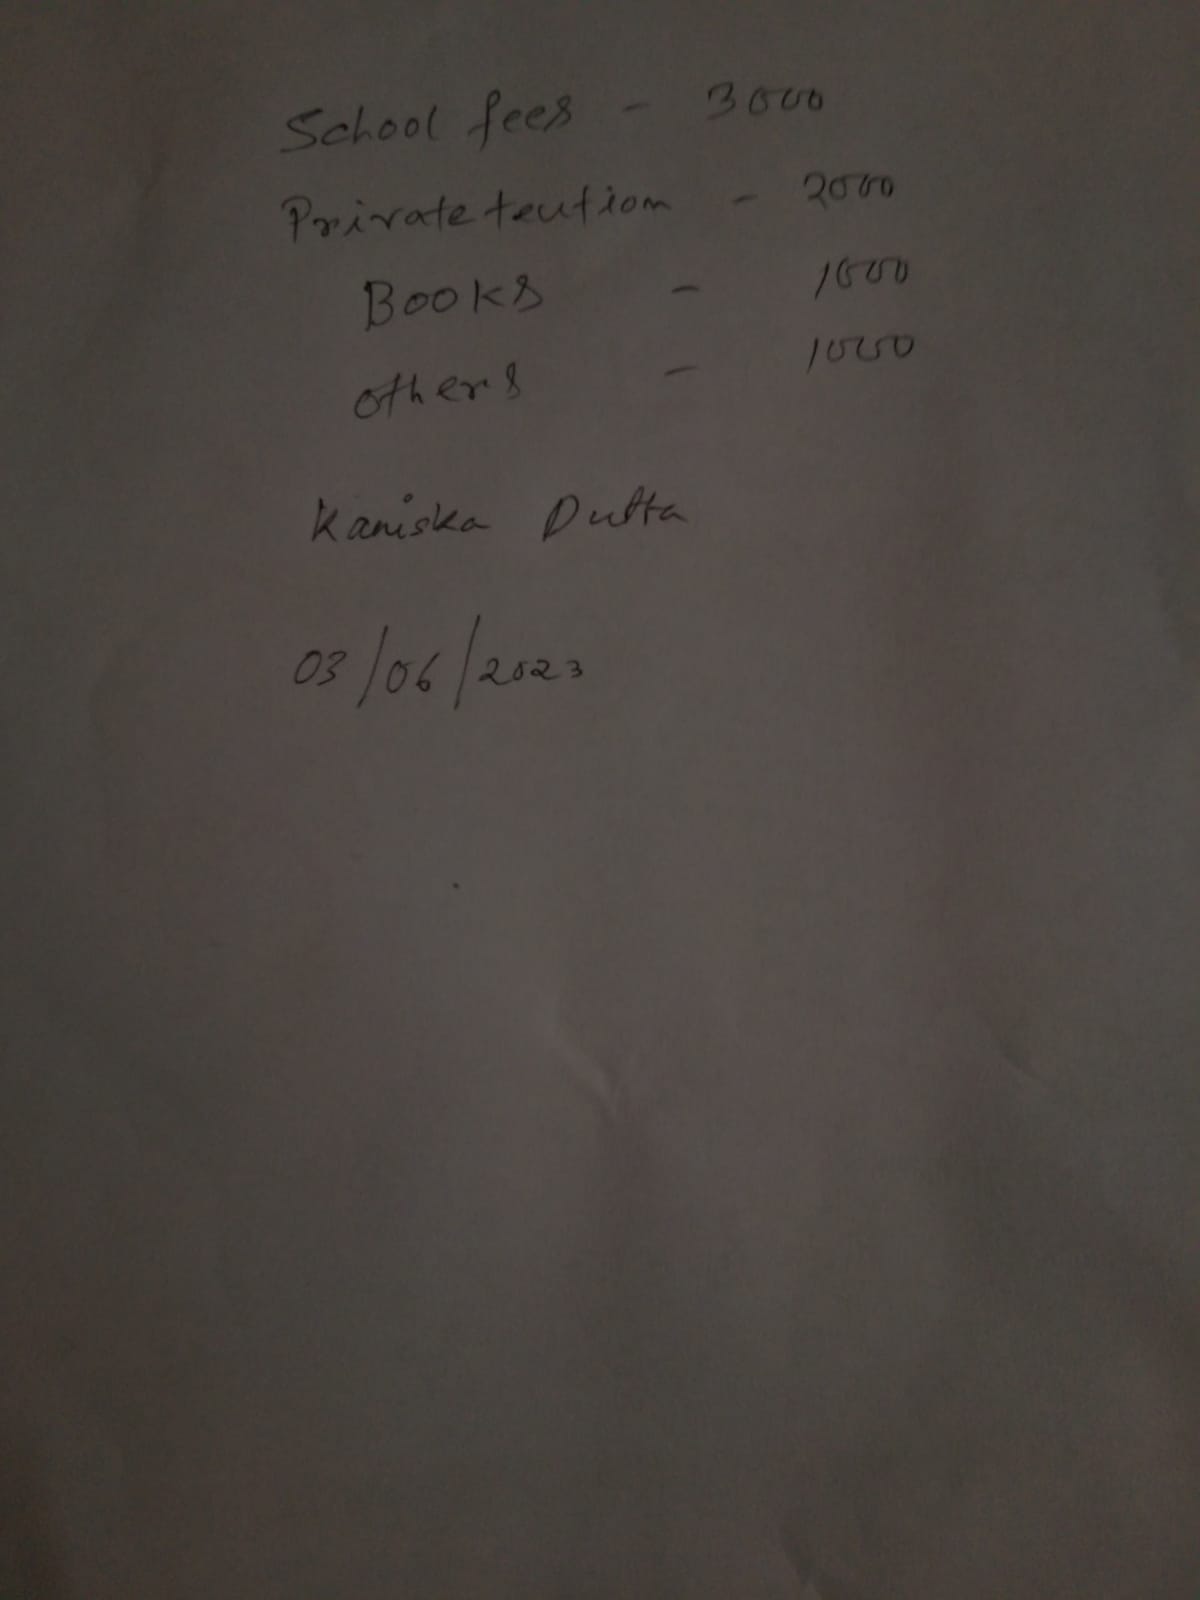 School fees - 3000
Private teution - 2000
Books - 1000
others - 1000
Kaniska Dutta
03/06/2023